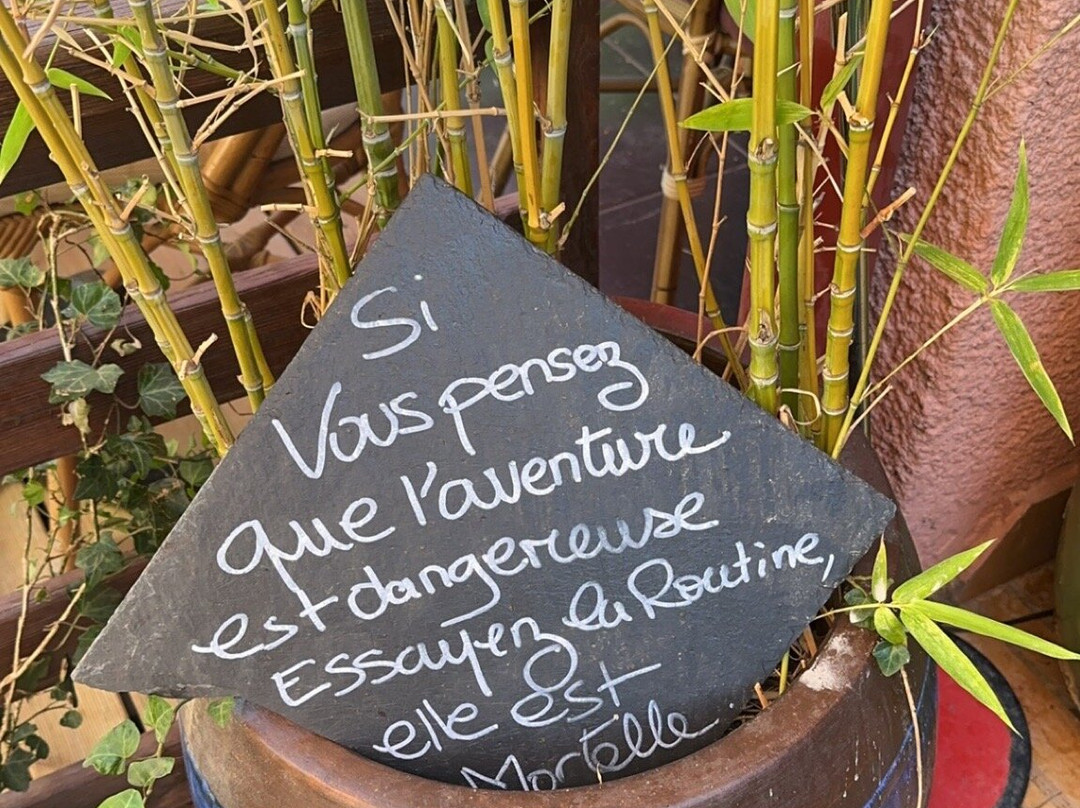 Si
Vous pensez
que l'aventure
est dangereuse
Essayez la Routine,
elle est
Mortelle.